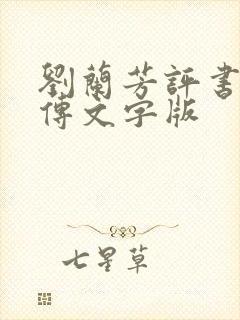 劉蘭芳評書
傳文字版
七星草